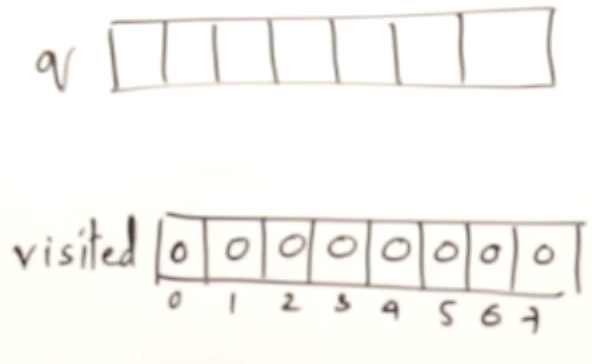 q
visited 0 0 0 0 0 0 0 0
0 1 2 3 4 5 6 7